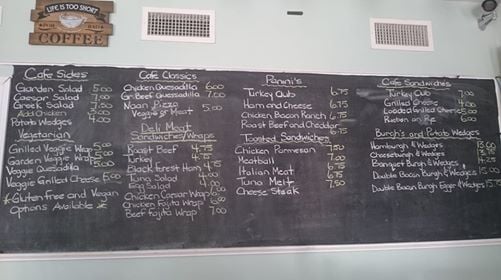 LIFE IS TOO SHORT
COFFEE
Cafe Sides
Garden Salad 5.00
Caesar Salad 7.00
Greek Salad 7.50
Add Chicken
Potato Wedges 4.00
Vegetarian
Grilled Veggie Wrap 5.00
Garden Veggie Wrap
Veggie Quesadilla
Veggie Grilled Cheese 5.00
*Gluten free and Vegan
Options Available *
Cafe Classics
Chicken Quesadilla 6.00
Gr. Beef Quesadilla 7.00
Naan Pizza
Veggie or Meat 5.00
Deli Meat
Sandwiches/Wraps
Roast Beef 4.75
Turkey 4.75
Black Forest Ham 4.75
Tuna Salad 4.00
Egg Salad 4.00
Chicken Caesar Wrap
Chicken Fajita Wrap 6.00
Beef Fajita Wrap 7.00
Panini's
Turkey Club 6.75
Ham and Cheese 6.75
Chicken Bacon Ranch 6.75
Roast Beef and Cheddar
Toasted Sandwiches
Chicken Parmesan 7.50
Meatball 7.00
Italian Meat 6.75
Tuna Melt 6.75
Cheese Steak 7.50
Cafe Sandwiches
Turkey Club 7.00
Grilled Cheese 4.00
Loaded Grilled Cheese 5.00
Reuben on Rye 6.00
Burgh's and Potato Wedges
Hamburgh & Wedges 13.00
Cheeseburgh & Wedges
Banquet Burgh & Wedges 14.25
Double Bacon Burgh & Wedges 15.00
Double Bacon Burgh Egger & Wedges